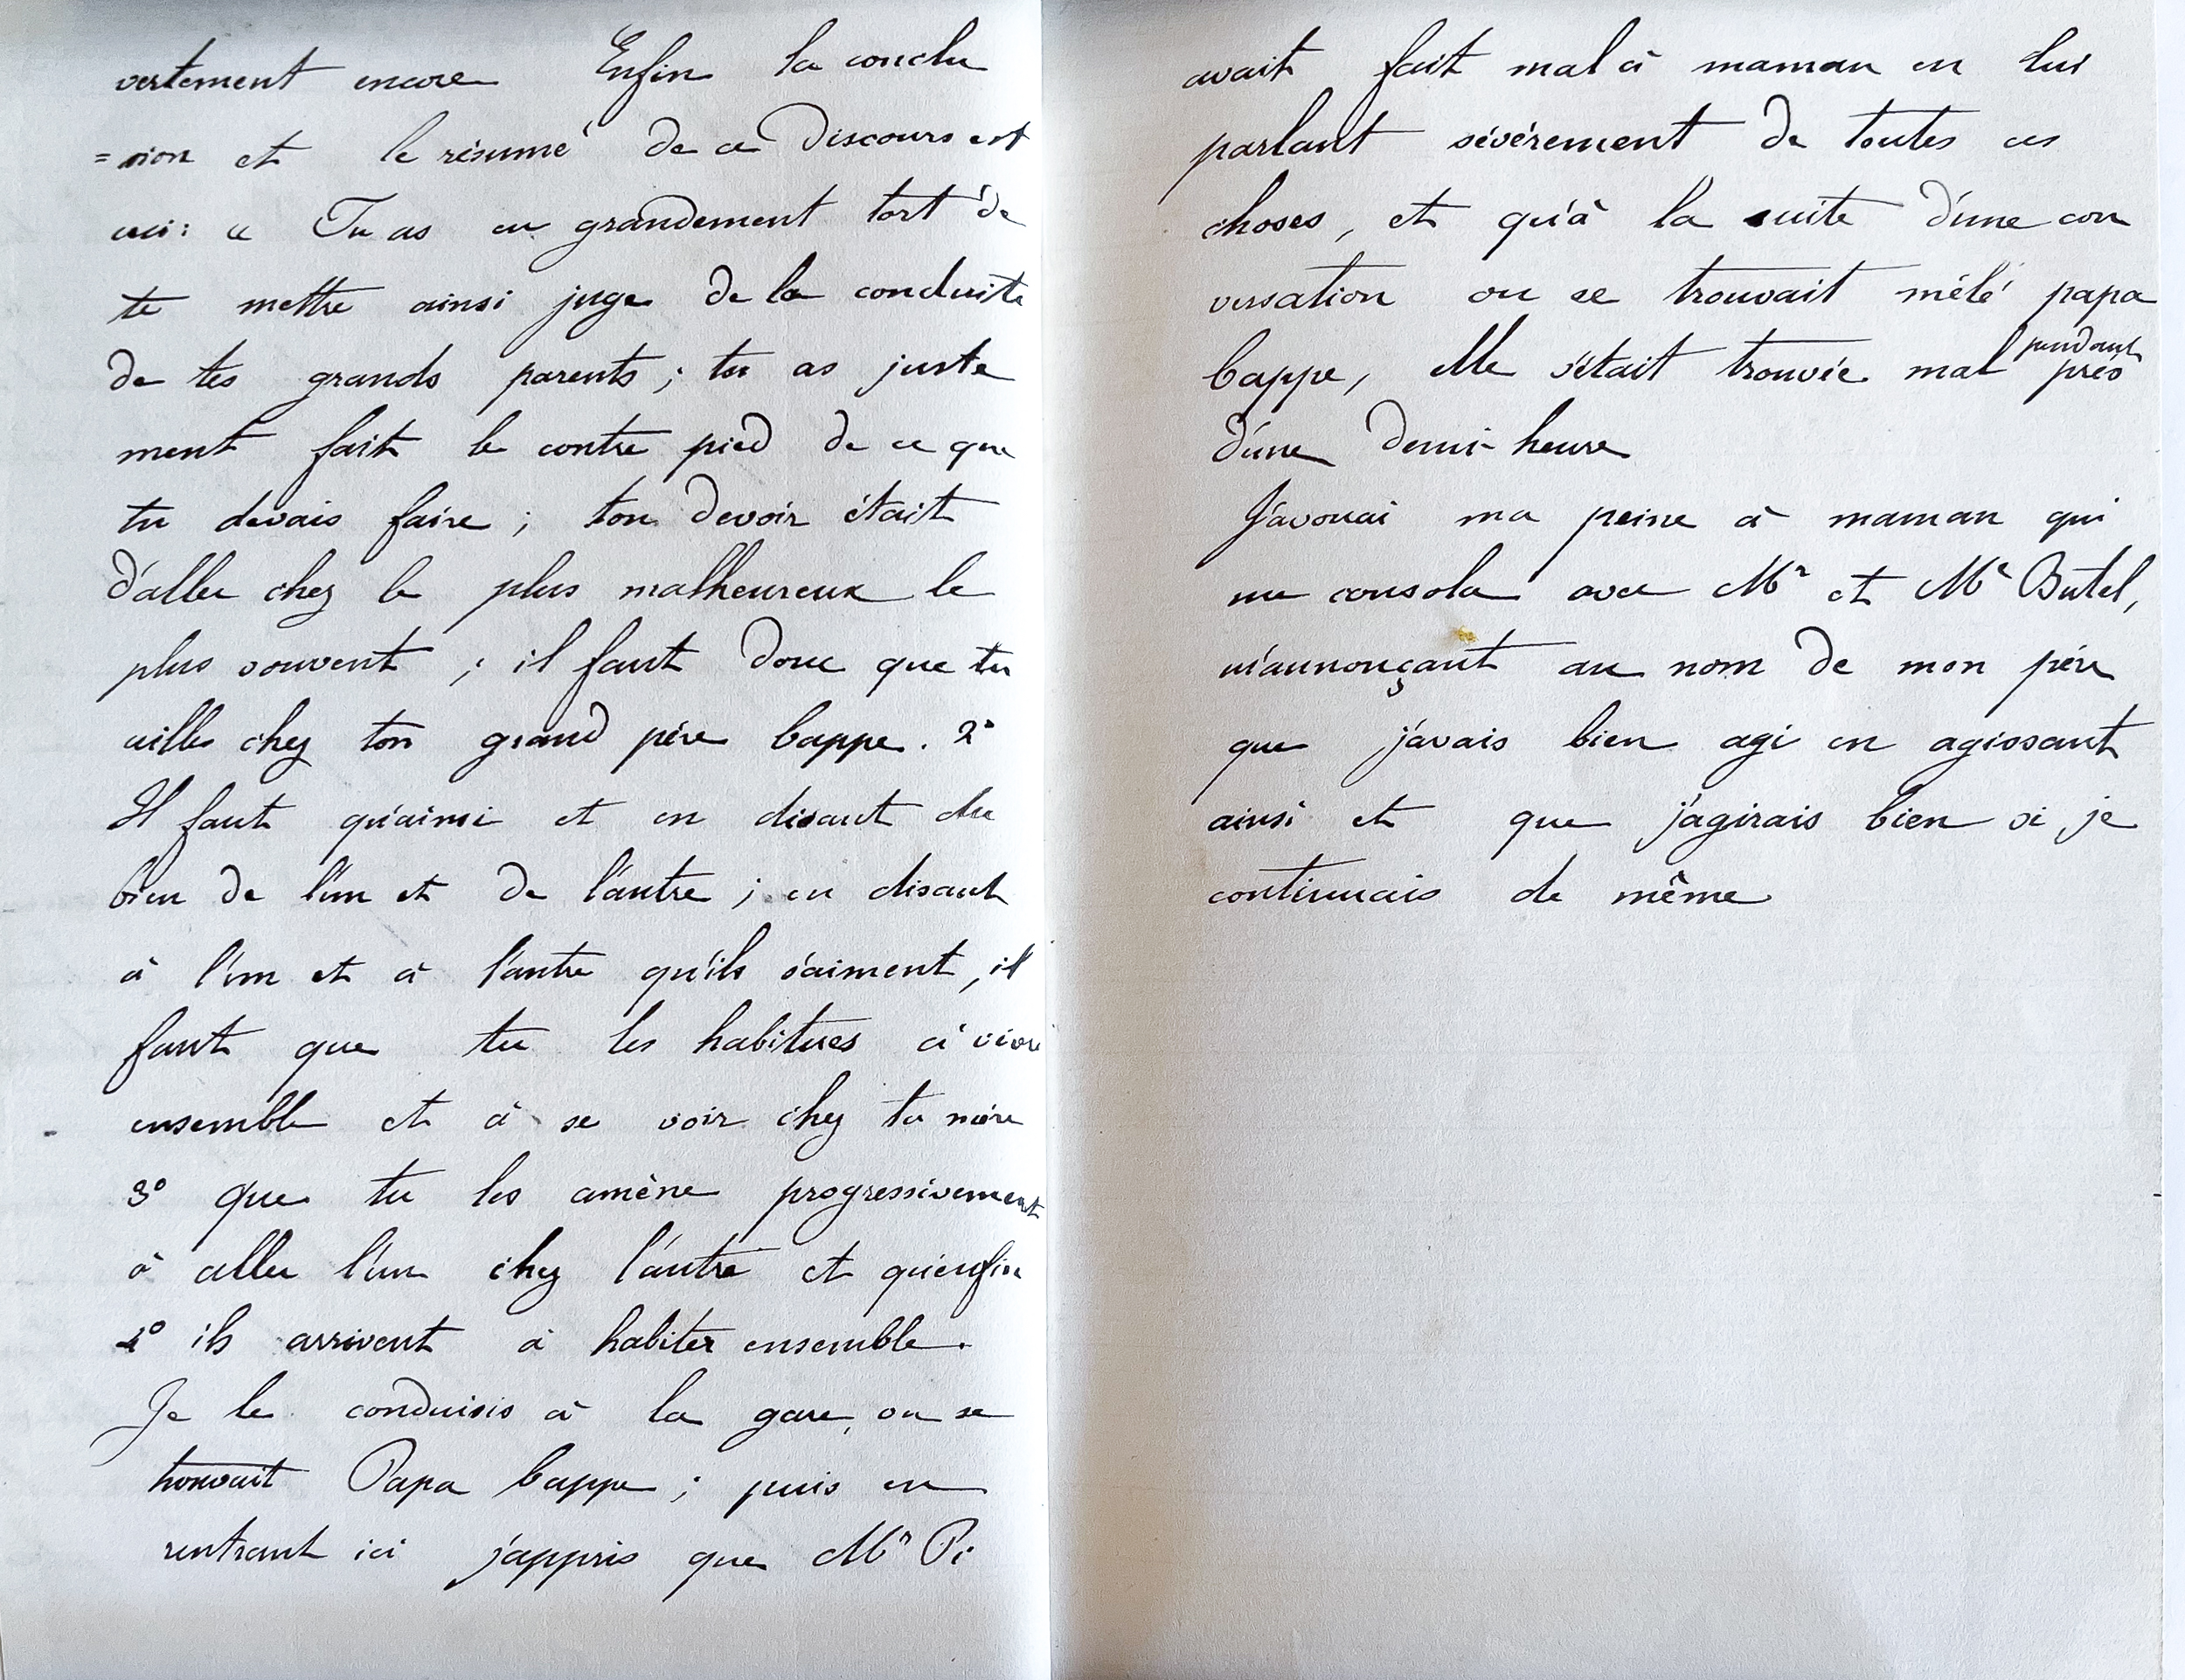 vertement encore Enfin la conclu
=sion et le résumé de ce discours est
ceci : « Tu as eu grandement tort de
te mettre ainsi juge de la conduite
de tes grands parents ; tu as juste
ment fait le contre pied de ce que
tu devais faire ; ton devoir était
d'aller chez le plus malheureux le
plus souvent ; il faut donc que tu
ailles chez ton grand père bappe. 2°
Il faut qu'ainsi et en disant du
bien de l'un et de l'autre ; en disant
à l'un et à l'autre qu'ils s'aiment, il
faut que tu les habitues à vivre
ensemble et à se voir chez ta mère
3° que tu les amène progressivement
à aller l'un chez l'autre et qu'enfin
4° ils arrivent à habiter ensemble.
Je le conduisis à la gare, ou se
trouvait Papa bappe ; puis en
rentrant ici j'appris que Mr Pi
avait fait mal à maman en lui
parlant sévèrement de toutes ces
choses, et qu'à la suite d'une con
versation ou se trouvait mêlé papa
bappe, elle s'était trouvée mal pendant près
d'une demi-heure
J'avouai ma peine à maman qui
me consola avec Mr et Me Butel,
m'annonçant au nom de mon père
que j'avais bien agi en agissant
ainsi et que j'agirais bien si je
continuais de même